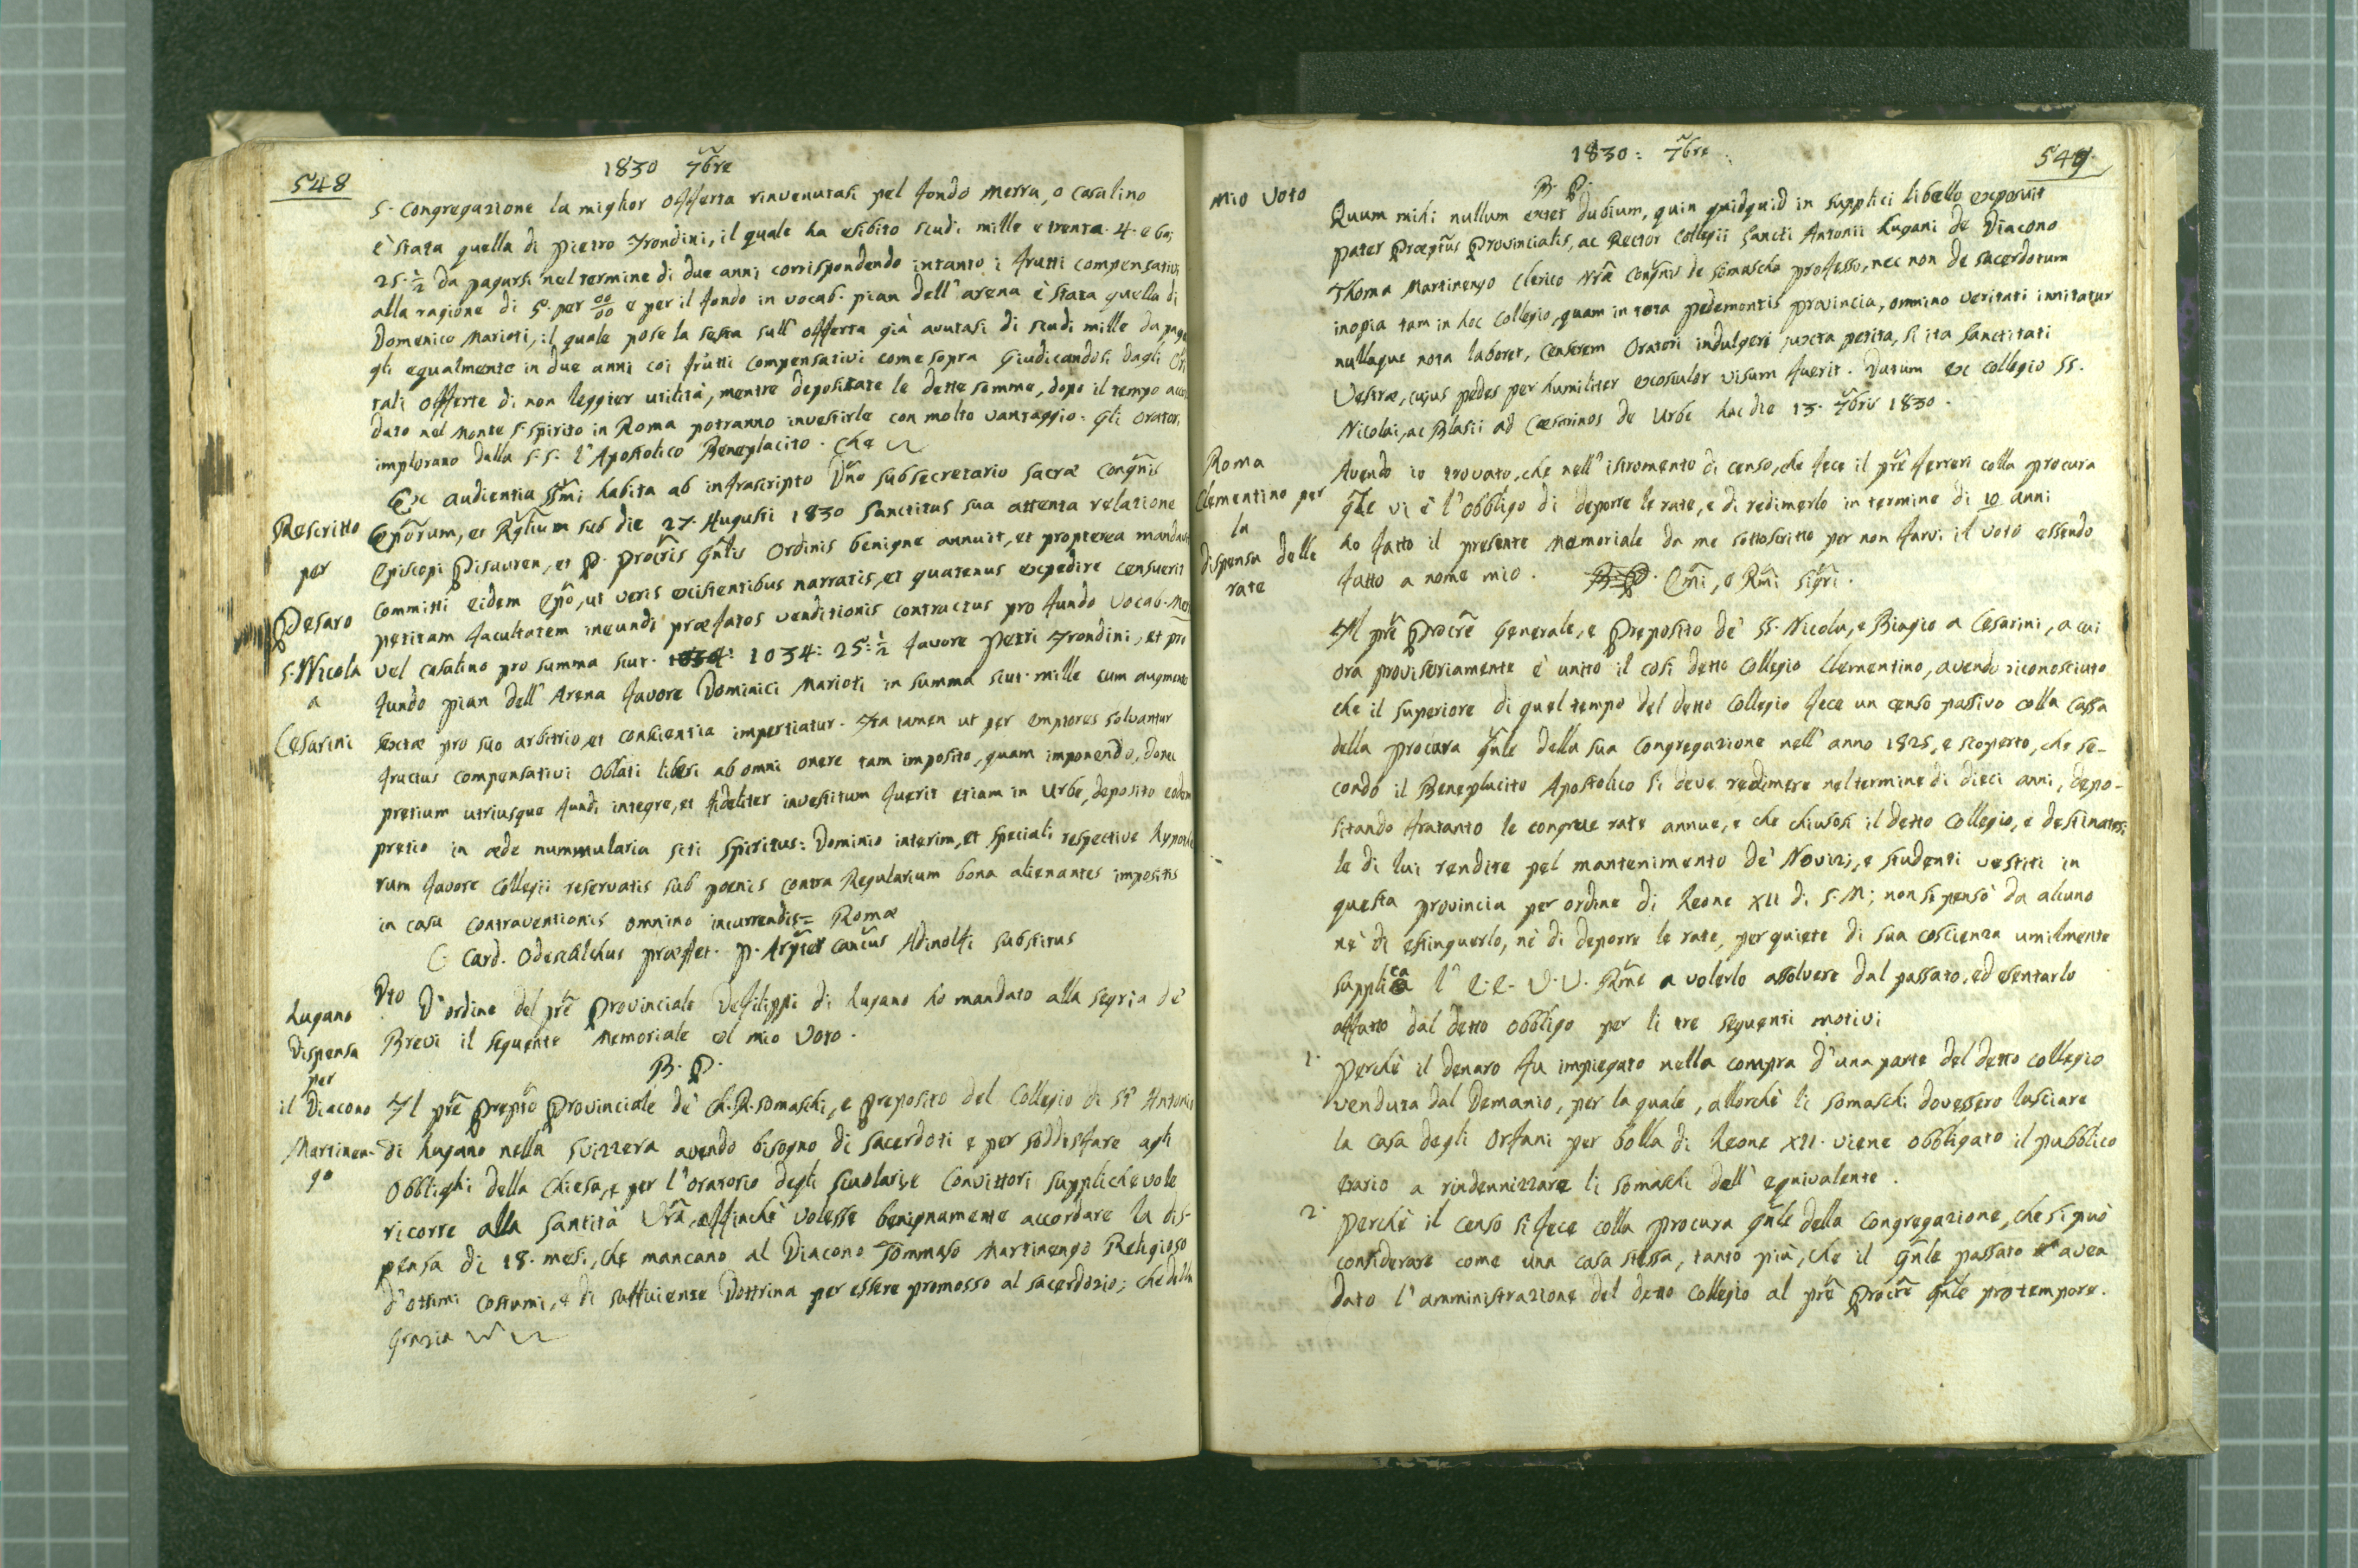 548
1830 7bre
S. Congregazione la miglior offerta rinvenutasi pel fondo Merra, o Casalino
è stata quella di Pietro Frondini, il quale ha esibito scudi mille e trenta 4. e baj
25 ½ da pagarsi nel termine di due anni corrispondendo intanto i frutti compensativi
alla ragione di 5. per 00/00 e per il fondo in vocab. pian dell' arena è stata quella di
Domenico Marioti, il quale pose la sesta sull' offerta già avutasi di scudi mille da pagar
gli egualmente in due anni coi frutti compensativi come sopra Giudicandosi dagli
tali offerte di non leggier utilità, mentre depositate le dette somme, dopo il tempo accor
dato nel Monte S. Spirito in Roma potranno investirle con molto vantaggio. Gli Orator,
implorano dalla S. S. l' Apostolico Beneplacito. Che
Ex audientia SSmi habita ab infrascripto Dno subsecretario Sacræ Congnis
Rescritto
per
Pesaro
S. Nicola
a
Cesarini
Eporum, et Rglium sub die 27. Augusti 1830 Sanctitas sua attenta relatione
Episcopi Pisauren, et P. Procris Gnlis Ordinis benigne annuit, et propterea mandavit
committi eidem Epo, ut veris existentibus narratis, et quatenus expedire censuerit
petitam facultatem ineundi præfatos venditionis contractus pro fundo vocab. Mer
vel Casalino pro summa scut. 1034: 1034: 25: ½ favore Petri Frondini, et pro
fundo pian dell' Arena favore Dominici Marioti in summa scut. mille cum augmento
sextæ pro suo arbitrio, et conscientia impertiatur. Ita tamen ut per emptores solvantur
fructus compensativi oblati liberi ab omni onere tam imposito, quam imponendo, donec
pretium utriusque fundi integre, et fideliter investitum fuerit etiam in Urbe, deposito eodem
pretio in æde nummularia Sti Spiritus: Dominio interim, et speciali respective hypothe
rum favore Collegii reservatis sub poenis contra Regularium bona alienantes impositis
in casu contraventionis omnino incurrendis = Romæ
C. Card. Odescalchus præfet. P. Canius Adinolfi substitus
Lugano
Dispensa
per
il Diacono
Martinen-
go
Dto D' ordine del pre Provinciale Defilippi di Lugano ho mandato alla Segria de'
Brevi il seguente Memoriale col mio Voto.
B. P.
Il pre Prepto Provinciale de' Ch. R. Somaschi, e Preposito del Collegio di St' Antonio
di Lugano nella Svizzera avendo bisogno di Sacerdoti e per soddisfare agli
Obblighi della Chiesa, e per l' oratorio degli scuolari, e Convittori supplichevole
ricorre alla Santità Vra, affinchè volesse benignamente accordare la dis-
pensa di 18. mesi, che mancano al Diacono Tommaso Martinengo Religioso
d' ottimi costumi, e di sufficiente Dottrina per essere promosso al sacerdozio; che della
Grazia
1830: 7bre
549
Mio Voto
B. P.
Quum mihi nullum extet dubium, quin quidquid in supplici libello exposuit
Pater Præptus Provincialis, ac Rector Collegii Sancti Antonii Lugani de Diacono
Thoma Martinengo Clerico Nræ Congnis de Somascha professo, nec non de sacerdotum
inopia tam in hoc Collegio, quam in tota Pedemontis Provincia, omnino veritati innitatur
nullaque nota laboret, Censerem Oratori indulgeri juxta petita, si ita Sanctitati
Vestræ, cujus pedes per humiliter exosculor visum fuerit. Datum ex Collegio SS.
Nicolai, ac Blasii ad Cæsarinos de Urbe hac die 13. 7bris 1830.
Roma
Clementino per
la
dispensa delle
rate
Avendo io trovato, che nell' istromento di censo, che fece il pre Ferreri colla procura
gle vi è l' obbligo di deporre le rate, e di redimerlo in termine di 10 anni
ho fatto il presente Memoriale da me sottoscritto per non farvi il voto essendo
fatto a nome mio. B. P. Emi, e Rmi Sigri.
Il pre Procre Generale, e Preposito de' SS. Nicola, e Biagio a Cesarini, a cui
ora provisoriamente è unito il così detto Collegio Clementino, avendo riconosciuto
che il superiore di quel tempo del detto Collegio fece un censo passivo colla Cassa
della Procura gnle della sua Congregazione nell' anno 1825, e scoperto, che se-
condo il Beneplacito Apostolico si deve redimere nel termine di dieci anni, depo-
sitando fratanto le congrue rate annue, e che chiusosi il detto Collegio, e destinatesi
le di lui rendite pel mantenimento de' Novizj, e studenti vestiti in
questa provincia per ordine di Leone XII di S. M; non si pensò da alcuno
nè di estinguerlo, nè di deporre le rate, per quiete di sua coscienza umilmente
supplica l' E. E. V. V. Rme a volerlo assolvere dal passato, ed esentarlo
affatto dal detto obbligo per li tre seguenti motivi
1. Perchè il denaro fu impiegato nella compra d' una parte del detto Collegio
venduta dal Demanio, per la quale, allorchè li Somaschi dovessero lasciare
la casa degli Orfani per bolla di Leone XII. viene obbligato il pubblico
erario a rindennizzare li Somaschi dell' equivalente.
2. Perchè il censo si fece colla procura gnle della Congregazione, che si può
considerare come una casa stessa, tanto più, che il Gnle passato avea
dato l' amministrazione del detto Collegio al pre Procre gnle pro tempore.